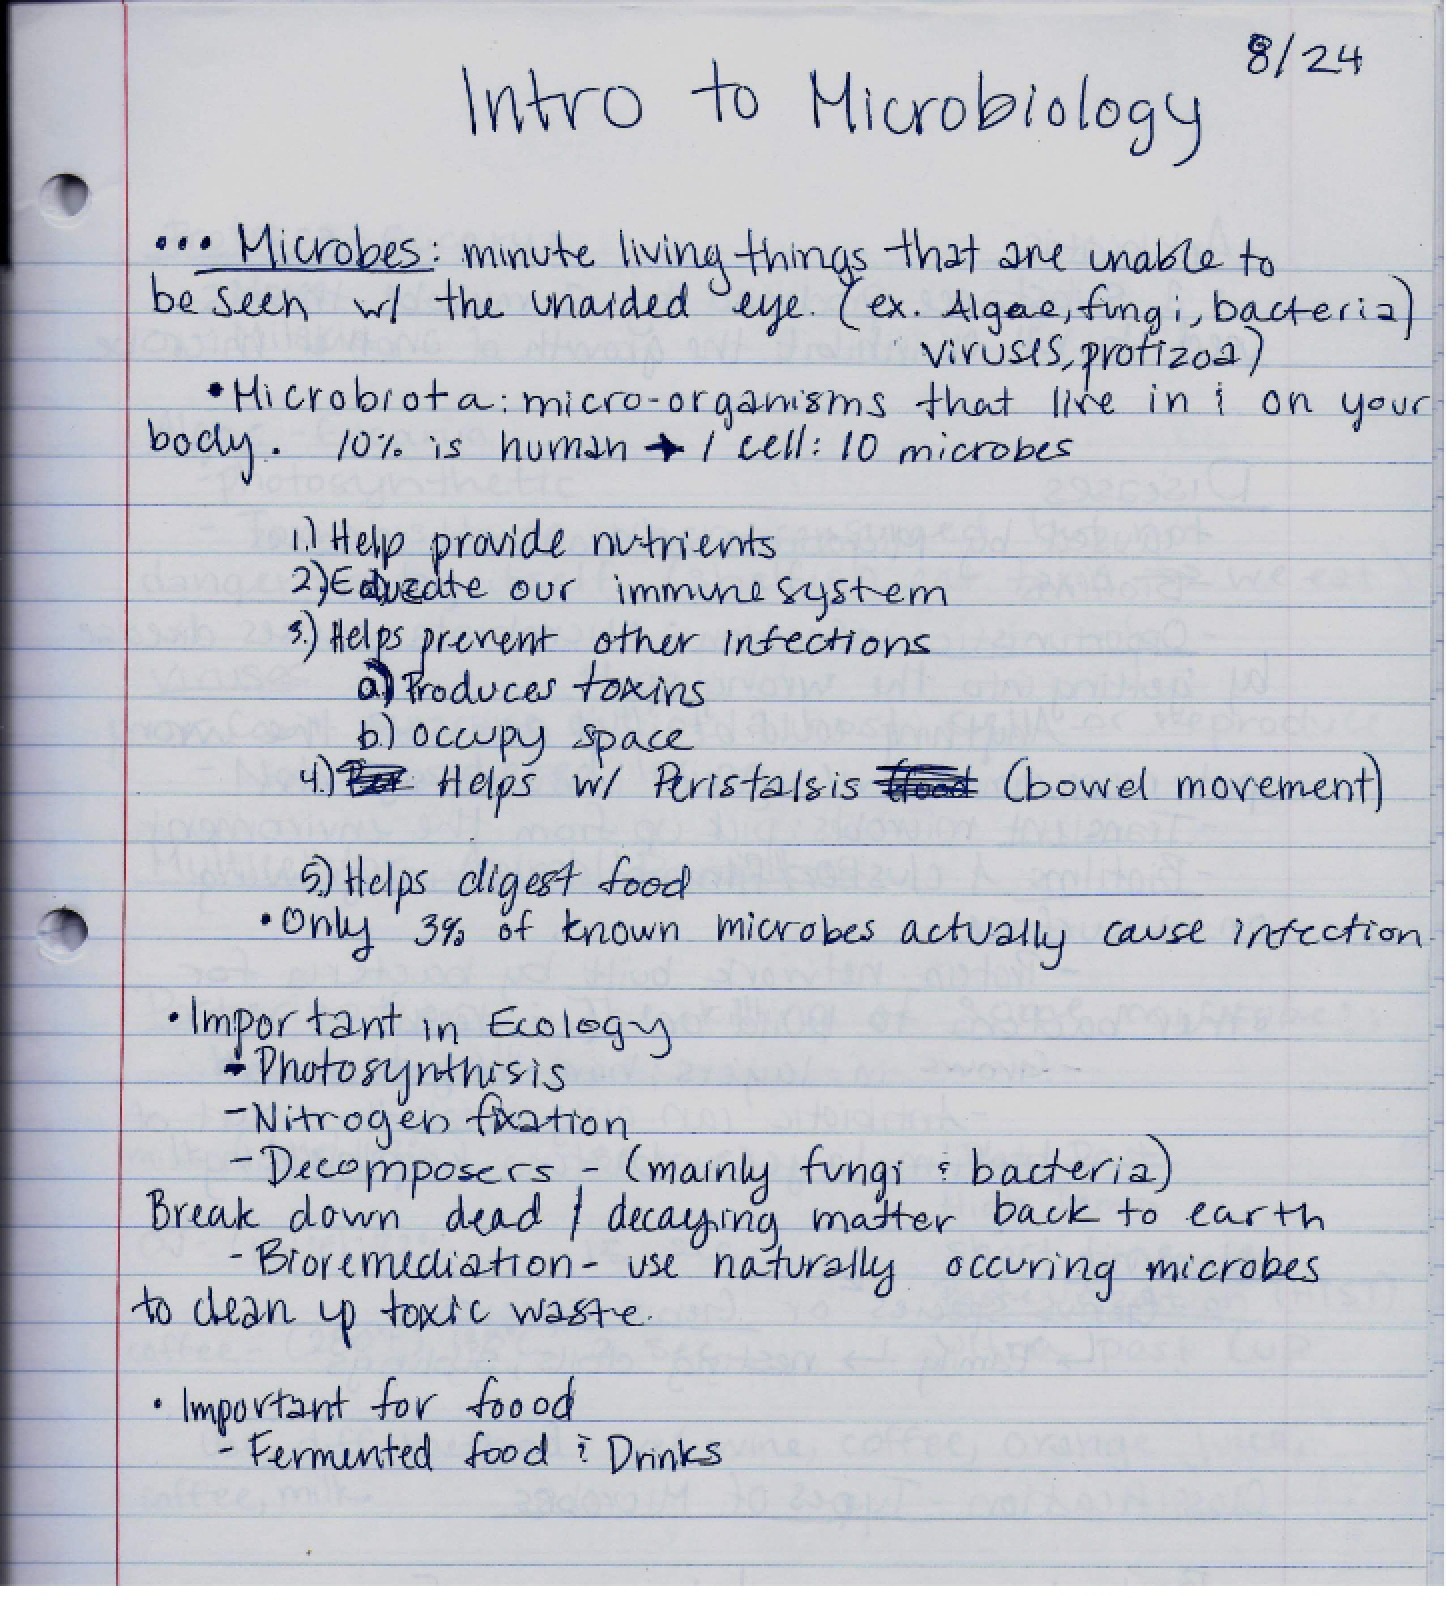 8/24
Intro to Microbiology
... Microbes: minute living things that are unable to
be seen w/ the unaided eye. (ex. Algae, fungi, bacteria)
viruses, protizoa)
• Microbiota: micro-organisms that live in & on your
body. 10% is human → 1 cell: 10 microbes
1.) Help provide nutrients
2.) Educate our immune system
3.) Helps prevent other infections
a) Produces toxins
b.) occupy space
4.) Helps w/ Peristalsis (bowel movement)
5.) Helps digest food
• Only 3% of known microbes actually cause infection
• Important in Ecology
- Photosynthisis
- Nitrogen fixation
- Decomposers - (mainly fungi & bacteria)
Break down dead / decaying matter back to earth
- Bioremediation - use naturally occuring microbes
to clean up toxic waste.
• Important for foood
- Fermented food & Drinks